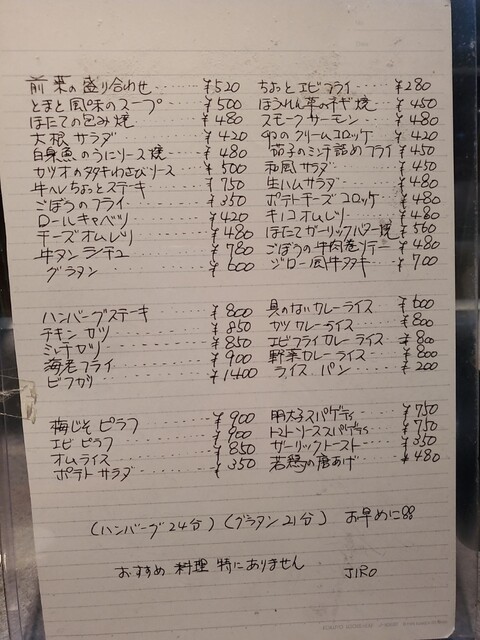 前菜の盛り合わせ ¥520
とまと風味のスープ ¥500
ほたての包み焼 ¥480
大根サラダ ¥420
白身魚のうにソース焼 ¥480
カツオのタタキわさびソース ¥500
牛ヘレちょっとステーキ ¥750
ごぼうのフライ ¥350
ロールキャベツ ¥420
チーズオムレツ ¥480
牛タンシチュー ¥780
グラタン ¥600
ちょっとエビフライ ¥280
ほうれん草のチヂ焼 ¥450
スモークサーモン ¥480
カニのクリームコロッケ ¥420
茄子のミンチ詰めフライ ¥450
和風サラダ ¥450
生ハムサラダ ¥480
ポテトチーズコロッケ ¥480
キノコオムレツ ¥480
ほたてガーリックバター焼 ¥560
ごぼうの牛肉巻ソテー ¥480
ジロー風牛タタキ ¥700
ハンバーグステーキ ¥800
チキンカツ ¥850
ミンチカツ ¥850
海老フライ ¥900
ビフカツ ¥1400
具のないカレーライス ¥600
カツカレーライス ¥800
エビフライカレーライス ¥800
野菜カレーライス ¥800
ライス パン ¥200
梅じそピラフ ¥900
エビピラフ ¥900
オムライス ¥850
ポテトサラダ ¥350
明太子スパゲティ ¥750
トマトソーススパゲティ ¥750
ガーリックトースト ¥350
若鶏の唐あげ ¥480
(ハンバーグ24分) (グラタン21分) お早めに
おすすめ料理 特にありません JIRO